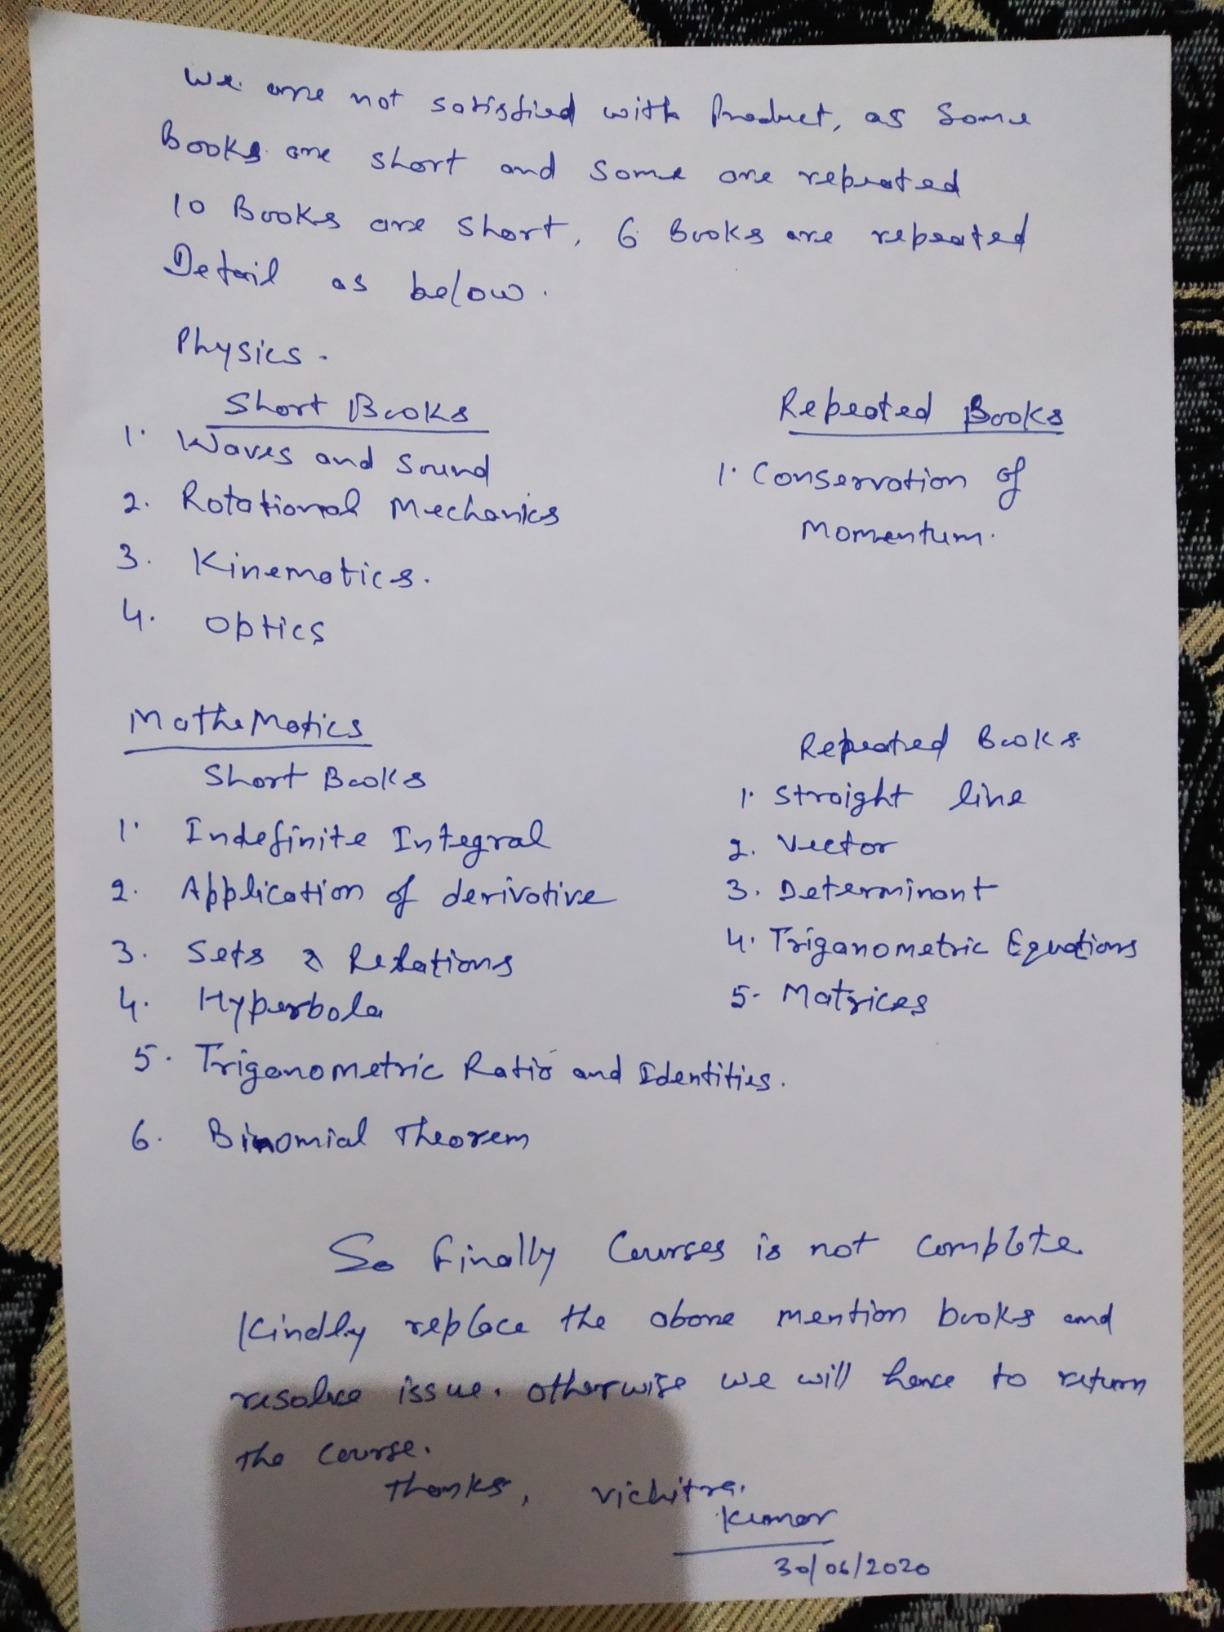 We are not satisfied with Product, as Some
Books are short and Some are repeated
10 Books are Short, 6 Books are repeated
Detail as below.
Physics.
Short Books
1. Waves and Sound
2. Rotational Mechanics
3. Kinematics.
4. Optics
Repeated Books
1. Conservation of
Momentum.
Mathematics
Short Books
1. Indefinite Integral
2. Application of derivative
3. Sets & Relations
4. Hyperbola
5. Triganometric Ratio and Identities.
6. Binomial Theorem
Repeated Books
1. Straight line
2. Vector
3. Determinant
4. Triganometric Equations
5. Matrices
So Finally Courses is not complete
Kindly replace the above mention books and
resolve issue. otherwise we will have to return
the Course.
Thanks, Vichitra.
Kumar
30/06/2020